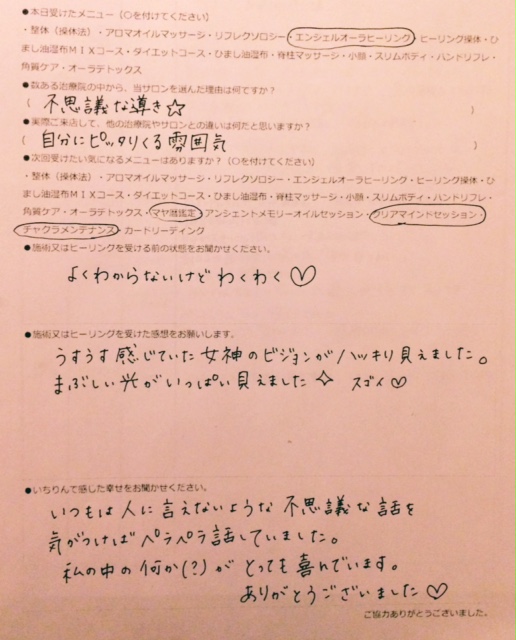 ●本日受けたメニュー（○を付けてください）
・整体（操体法）・アロマオイルマッサージ・リフレクソロジー・エンジェルオーラヒーリング・ヒーリング操体・ひ
まし油湿布ＭＩＸコース・ダイエットコース・ひまし油湿布・脊柱マッサージ・小顔・スリムボディ・ハンドリフレ・
角質ケア・オーラデトックス
●数ある治療院の中から、当サロンを選んだ理由は何ですか？
（ 不思議な導き☆ ）
●実際ご来店して、他の治療院やサロンとの違いは何だと思いますか？
（ 自分にピッタリくる雰囲気 ）
●次回受けたい気になるメニューはありますか？（○を付けてください）
・整体（操体法）・アロマオイルマッサージ・リフレクソロジー・エンジェルオーラヒーリング・ヒーリング操体・ひ
まし油湿布ＭＩＸコース・ダイエットコース・ひまし油湿布・脊柱マッサージ・小顔・スリムボディ・ハンドリフレ・
角質ケア・オーラデトックス・マヤ暦鑑定・アンシェントメモリーオイルセッション・クリアマインドセッション・
チャクラメンテナンス・カードリーディング
●施術又はヒーリングを受ける前の状態をお聞かせください。
よくわからないけど わくわく♡
●施術又はヒーリングを受けた感想をお願いします。
うすうす感じていた女神のビジョンがハッキリ見えました。
まぶしい光がいっぱい見えました✧ スゴイ♡
●いちりんで感じた幸せをお聞かせください。
いつもは人に言えないような 不思議な話を
気がつけばペラペラ話していました。
私の中の何か(?)が とっても喜んでいます。
ありがとうございました♡
ご協力ありがとうございました。